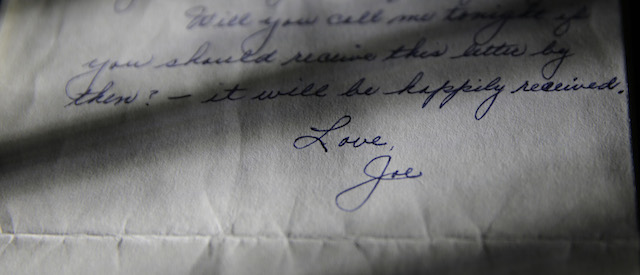 Will you call me tonight if
you should receive this letter by
then? — it will be happily received.
Love,
Joe